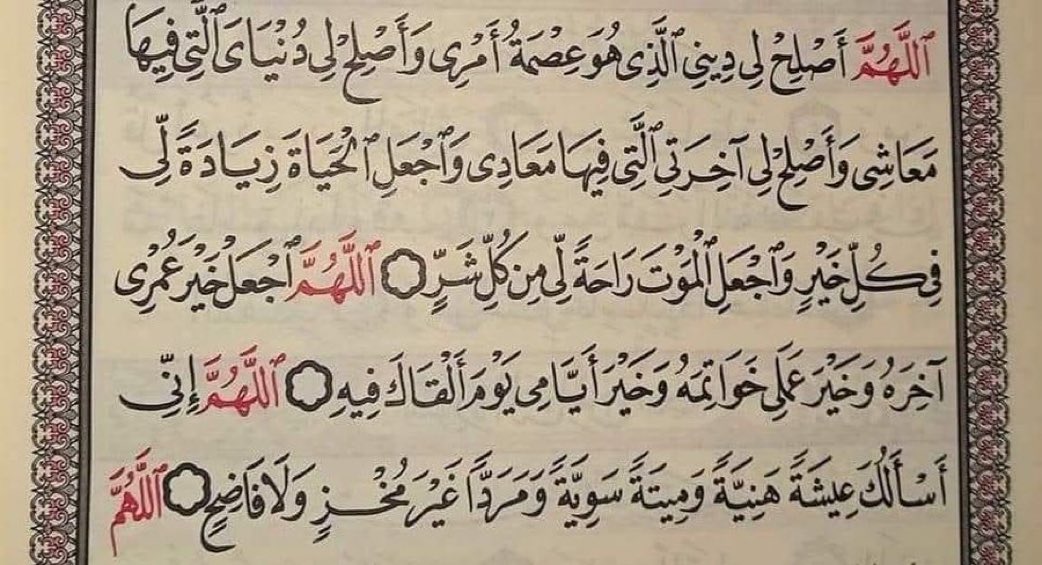 ٱللَّهُمَّ أَصْلِحْ لِى دِينِى ٱلَّذِى هُوَ عِصْمَةُ أَمْرِى وَأَصْلِحْ لِى دُنْيَاىَ ٱلَّتِى فِيهَا
مَعَاشِى وَأَصْلِحْ لِى آخِرَتِى ٱلَّتِى فِيهَا مَعَادِى وَٱجْعَلِ ٱلْحَيَاةَ زِيَادَةً لِّى
فِى كُلِّ خَيْرٍ وَٱجْعَلِ ٱلْمَوْتَ رَاحَةً لِّى مِن كُلِّ شَرٍّ ۝ ٱللَّهُمَّ ٱجْعَلْ خَيْرَ عُمْرِى
آخِرَهُ وَخَيْرَ عَمَلِى خَوَاتِمَهُ وَخَيْرَ أَيَّامِى يَوْمَ أَلْقَاكَ فِيهِ ۝ ٱللَّهُمَّ إِنِّى
أَسْأَلُكَ عِيشَةً هَنِيَّةً وَمِيتَةً سَوِيَّةً وَمَرَدًّا غَيْرَ مُخْزٍ وَلَا فَاضِحٍ ۝ ٱللَّهُمَّ